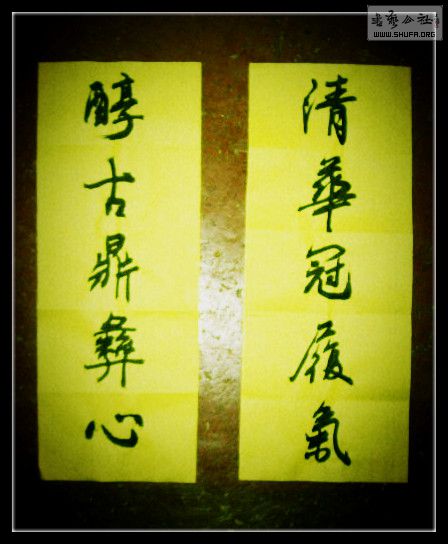 清華冠履氣
醇古鼎彝心
書藝公社
WWW.SHUFA.ORG